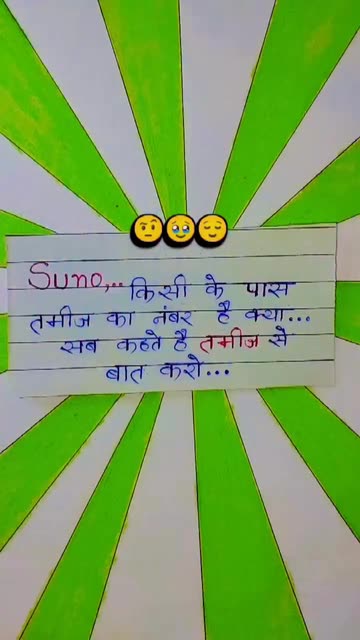 Suno,.. किसी के पास
तमीज का नंबर है क्या...
सब कहते है तमीज से
बात करो...